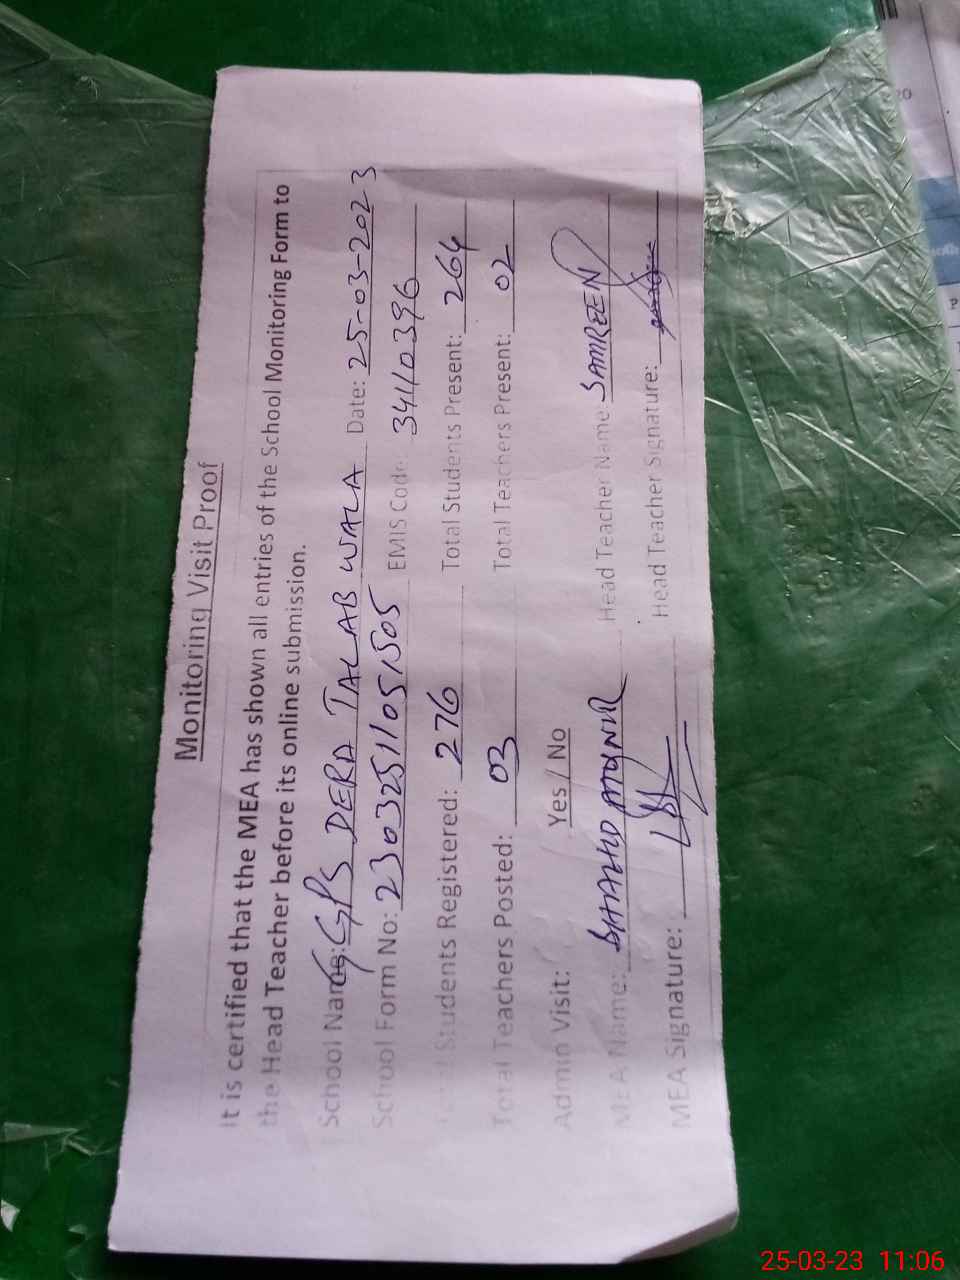 Monitoring Visit Proof
It is certified that the MEA has shown all entries of the School Monitoring Form to
the Head Teacher before its online submission.
School Name: GPS DERA TALAB WALA Date: 25-03-2023
School Form No: 23032511051505 EMIS Code 34110396
Total Students Registered: 276 Total Students Present: 264
Total Teachers Posted: 03 Total Teachers Present: 02
Admin Visit: Yes / No
MEA Name: Head Teacher Name SAMREEN
MEA Signature: Head Teacher Signature:
25-03-23 11:06